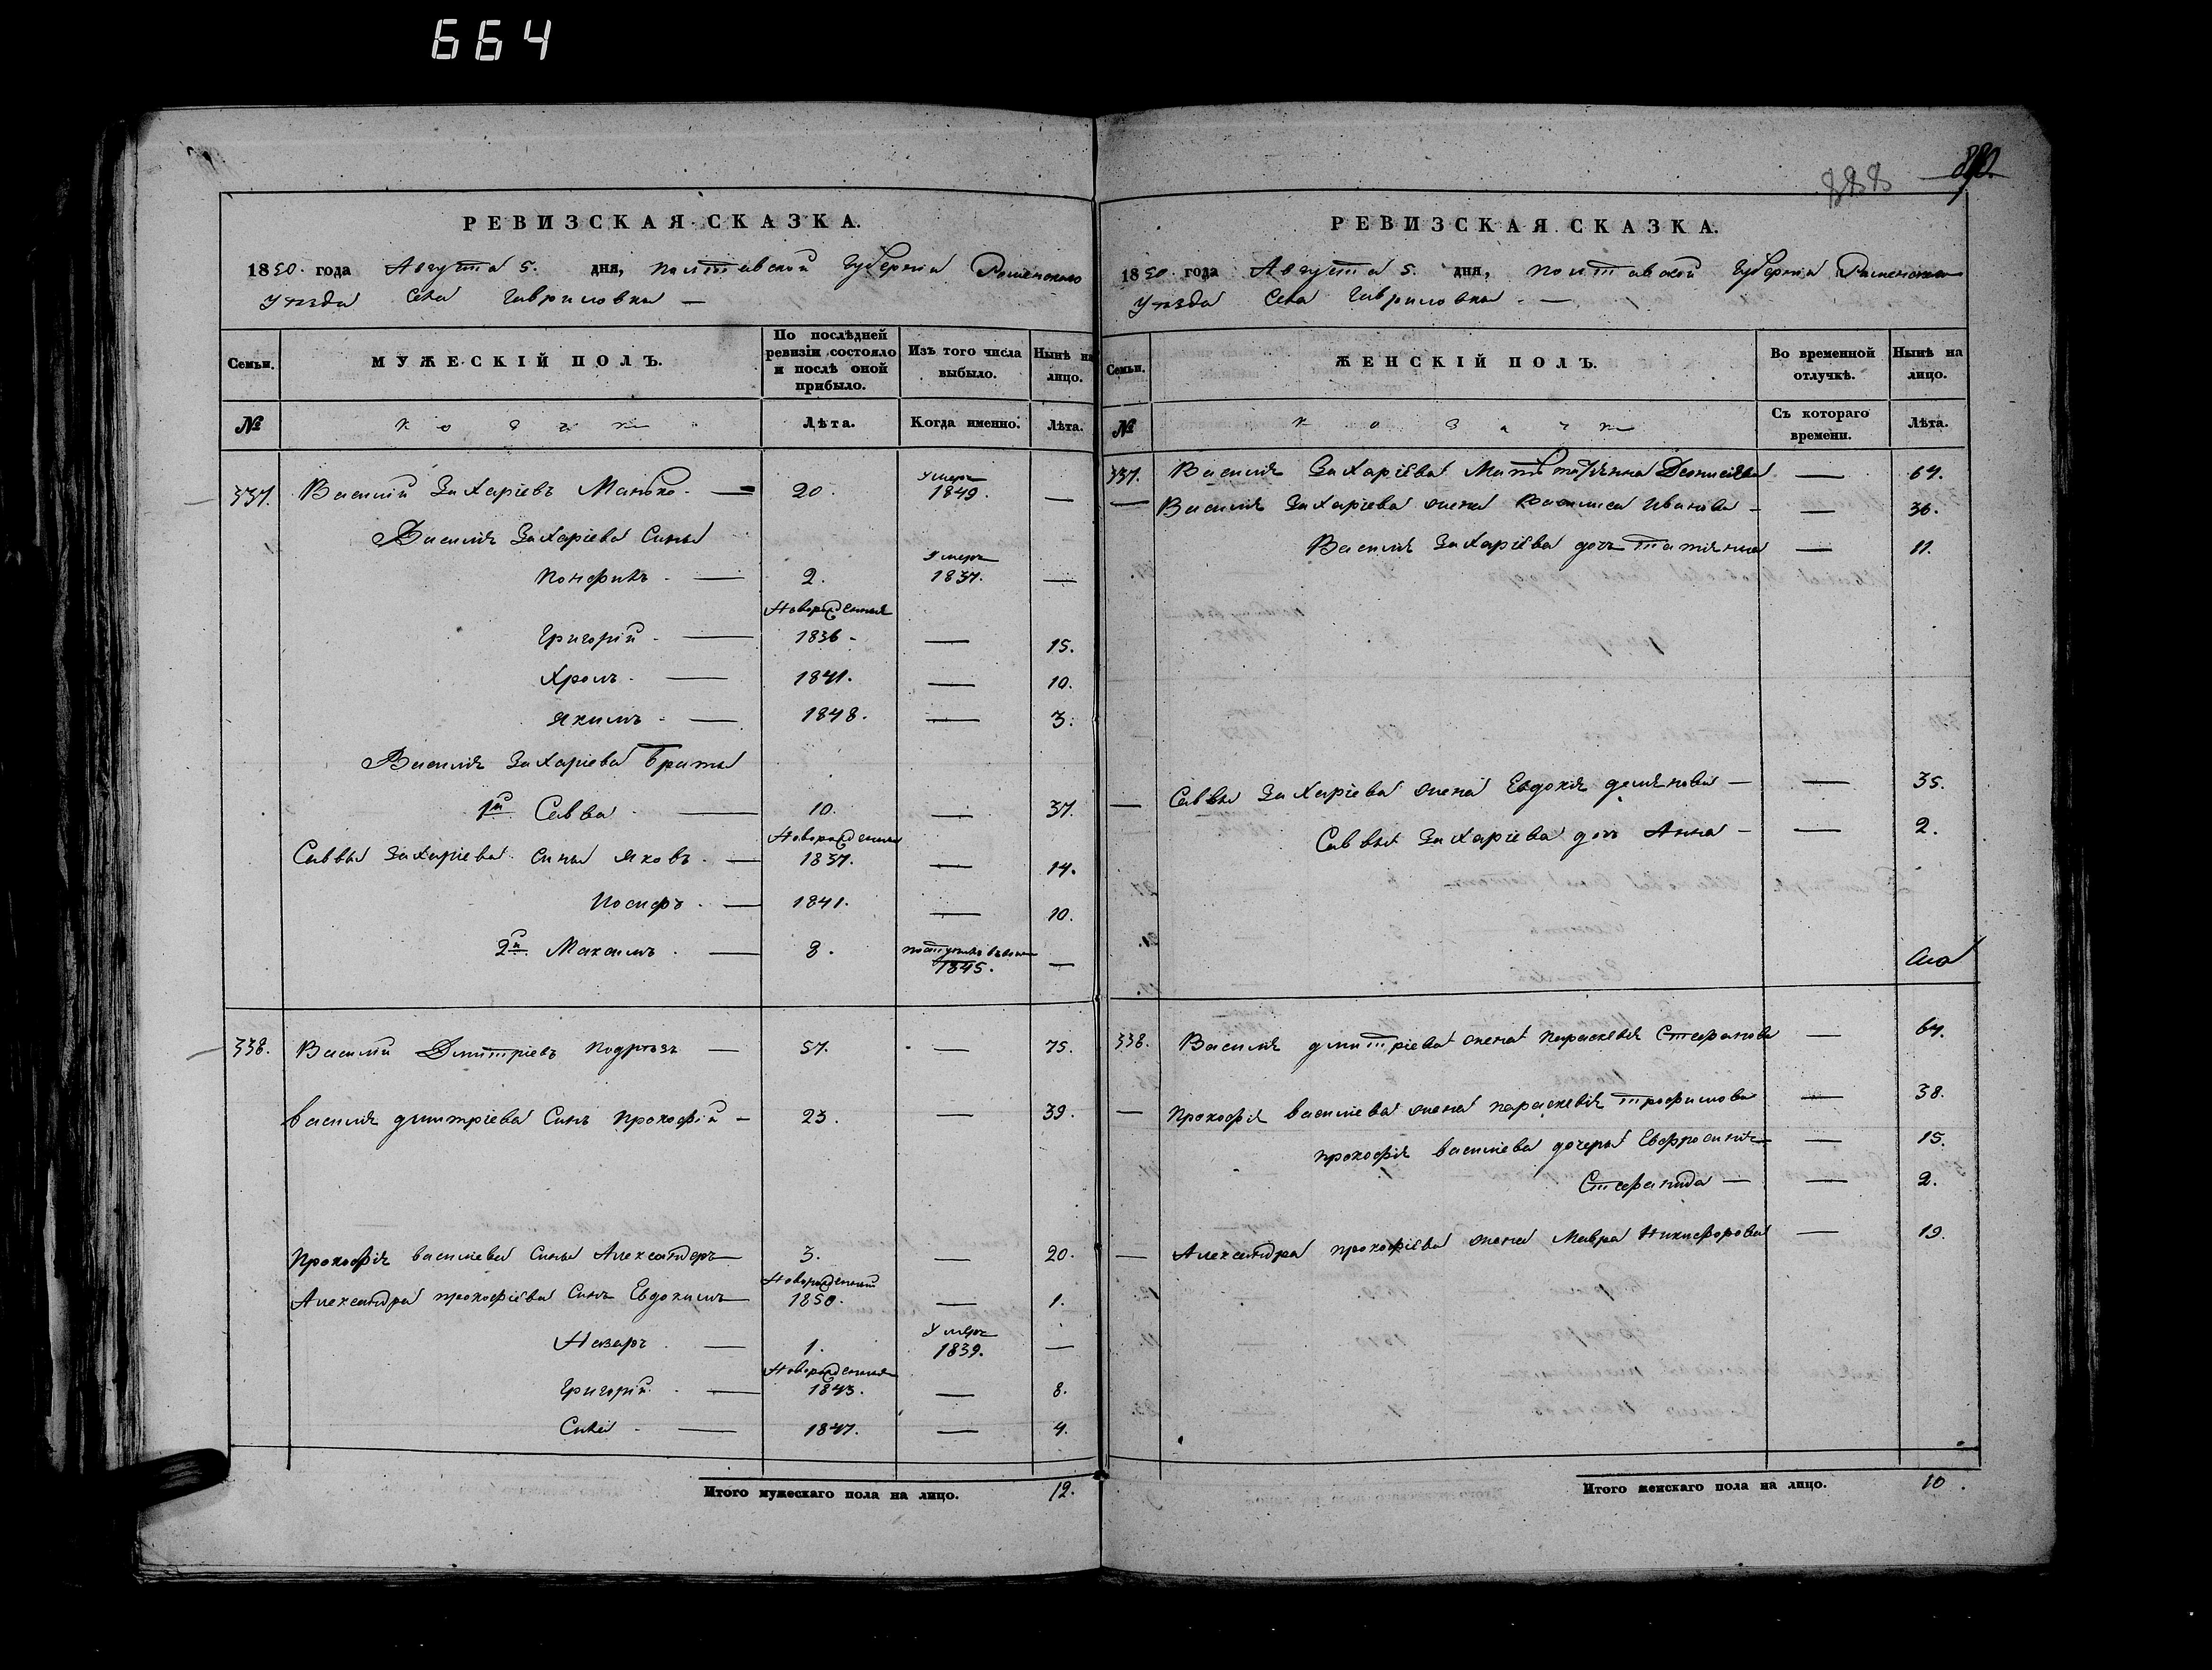 664
РЕВИЗСКАЯ СКАЗКА.
1850. года Августа 5. дня, Полтавской Губернии Роменского
Уезда Села Гавриловки —
Семьи. МУЖЕСКІЙ ПОЛЪ. По послѣдней ревизіи состояло и послѣ оной прибыло. Изъ того числа выбыло. Нынѣ на лицо.
№ Козаки Лѣта. Когда именно. Лѣта.
337. Василій Захаріевъ Манько. — 20. Умеръ 1849. —
Василія Захаріева Сины
Понфилъ. — 2. Умеръ 1837. —
Новорожденныя
Григорій — 1836 — 15.
Хролъ — 1841. — 10.
Якимъ — 1848. — 3.
Василія Захаріева Браты
1й Савва — 10. — 37.
Новорожденныя
Саввы Захаріева Сины Яковъ — 1837. — 14.
Иосифъ — 1841. — 10.
2й Максимъ — 8. 1845. —
338. Василій Дмитріевъ Подрѣзъ — 57. — 75.
Василія Дмитріева Синъ Прокофій — 23. — 39.
Прокофія Василіева Сины Александеръ — 3. — 20.
Новорожденный
Александра Прокофіева Синъ Евдокимъ — 1850. — 1.
Назаръ — 1. Умеръ 1839. —
Новорожденныя
Григорій — 1843. — 8.
Сила — 1847. — 4.
Итого мужескаго пола на лицо. 12.
888 890.
РЕВИЗСКАЯ СКАЗКА.
1850 года Августа 5. дня, Полтавской Губернии Роменского
Уезда Села Гавриловки. —
Семьи. ЖЕНСКІЙ ПОЛЪ. Во временной отлучкѣ. Нынѣ на лицо.
№ Козачки Съ котораго времени. Лѣта.
337. Василія Захаріева Мать Татіянна Денисіева — 64.
— Василія Захаріева жена Василиса Иванова — — 36.
Василія Захаріева дочь Татіянна — 11.
— Саввы Захаріева жена Евдокія Демянова — — 35.
Саввы Захаріева дочь Анна — — 2.
338. Василія Дмитріева жена Параскевія Стефанова — 64.
— Прокофія Василіева жена Параскевія Трофимова — 38.
Прокофія Василіева дочеры Евфросинія — — 15.
Стефанида — — 2.
— Александра Прокофіева жена Мавра Никифорова — 19.
Итого женскаго пола на лицо. 10.